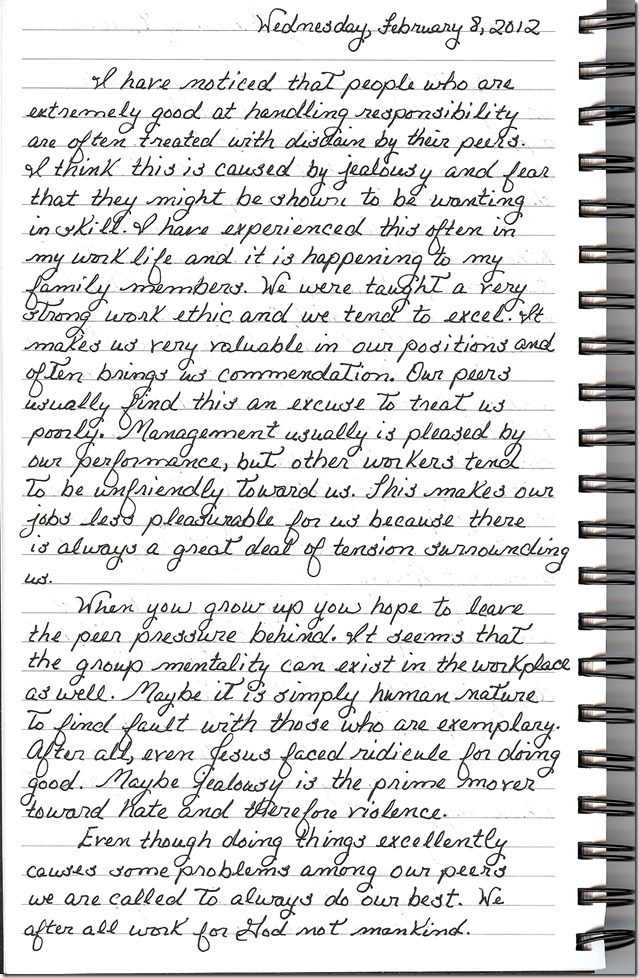 Wednesday, February 8, 2012
I have noticed that people who are
extremely good at handling responsibility
are often treated with disdain by their peers.
I think this is caused by jealousy and fear
that they might be shown to be wanting
in skill. I have experienced this often in
my work life and it is happening to my
family members. We were taught a very
strong work ethic and we tend to excel. It
makes us very valuable in our positions and
often brings us commendation. Our peers
usually find this an excuse to treat us
poorly. Management usually is pleased by
our performance, but other workers tend
to be unfriendly toward us. This makes our
jobs less pleasurable for us because there
is always a great deal of tension surrounding
us.
When you grow up you hope to leave
the peer pressure behind. It seems that
the group mentality can exist in the workplace
as well. Maybe it is simply human nature
to find fault with those who are exemplary.
After all, even Jesus faced ridicule for doing
good. Maybe jealousy is the prime mover
toward hate and therefore violence.
Even though doing things excellently
causes some problems among our peers
we are called to always do our best. We
after all work for God not mankind.